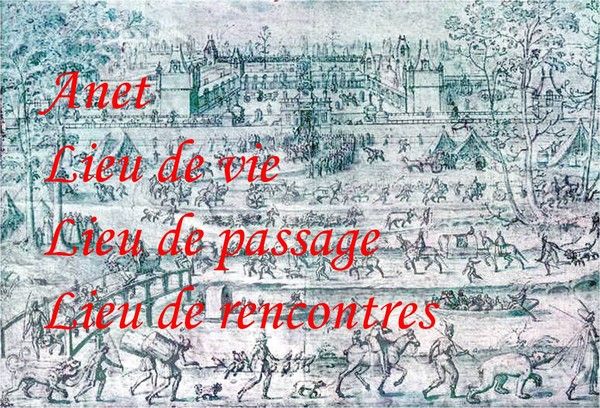 Anet
Lieu de vie
Lieu de passage
Lieu de rencontres